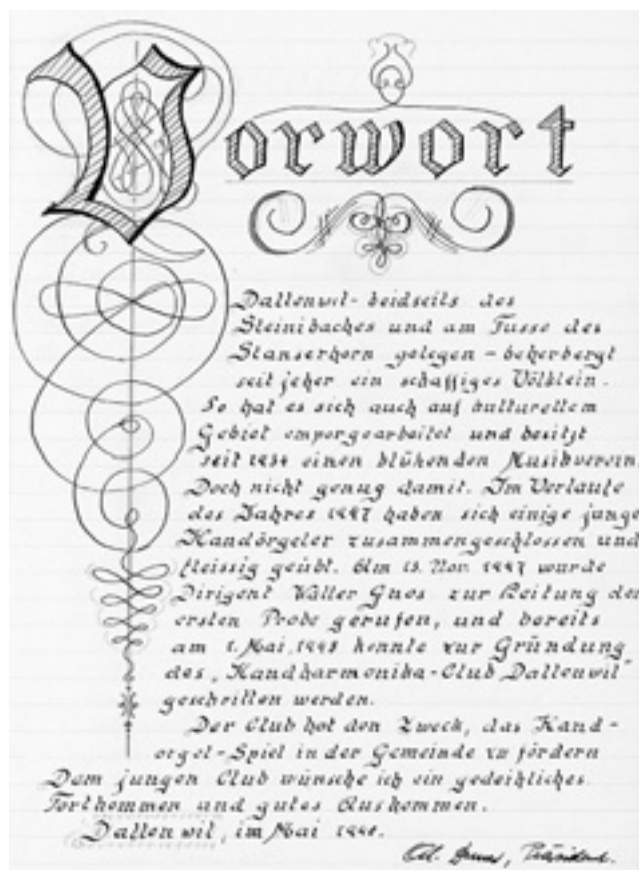 Vorwort
Dallenwil - beidseits des
Steinibaches und am Fusse des
Stanserhorn gelegen - beherbergt
seit jeher ein schaffiges Völklein.
So hat es sich auch auf kulturellem
Gebiet emporgearbeitet und besitzt
seit 1934 einen blühenden Musikverein.
Doch nicht genug damit. Im Verlaufe
des Jahres 1947 haben sich einige junge
Handörgeler zusammengeschlossen und
fleissig geübt. Am Nov. 1947 wurde
Dirigent Walter Gnos zur Leitung der
ersten Probe gerufen, und bereits
am 1. Mai, 1948 konnte zur Gründung
des „Handharmonika-Club Dallenwil"
geschritten werden.
Der Club hat den Zweck, das Hand-
orgel-Spiel in der Gemeinde zu fördern
Dem jungen Club wünsche ich ein gedeihliches
Fortkommen und gutes Auskommen.
Dallenwil, im Mai 1948.
Präsident.